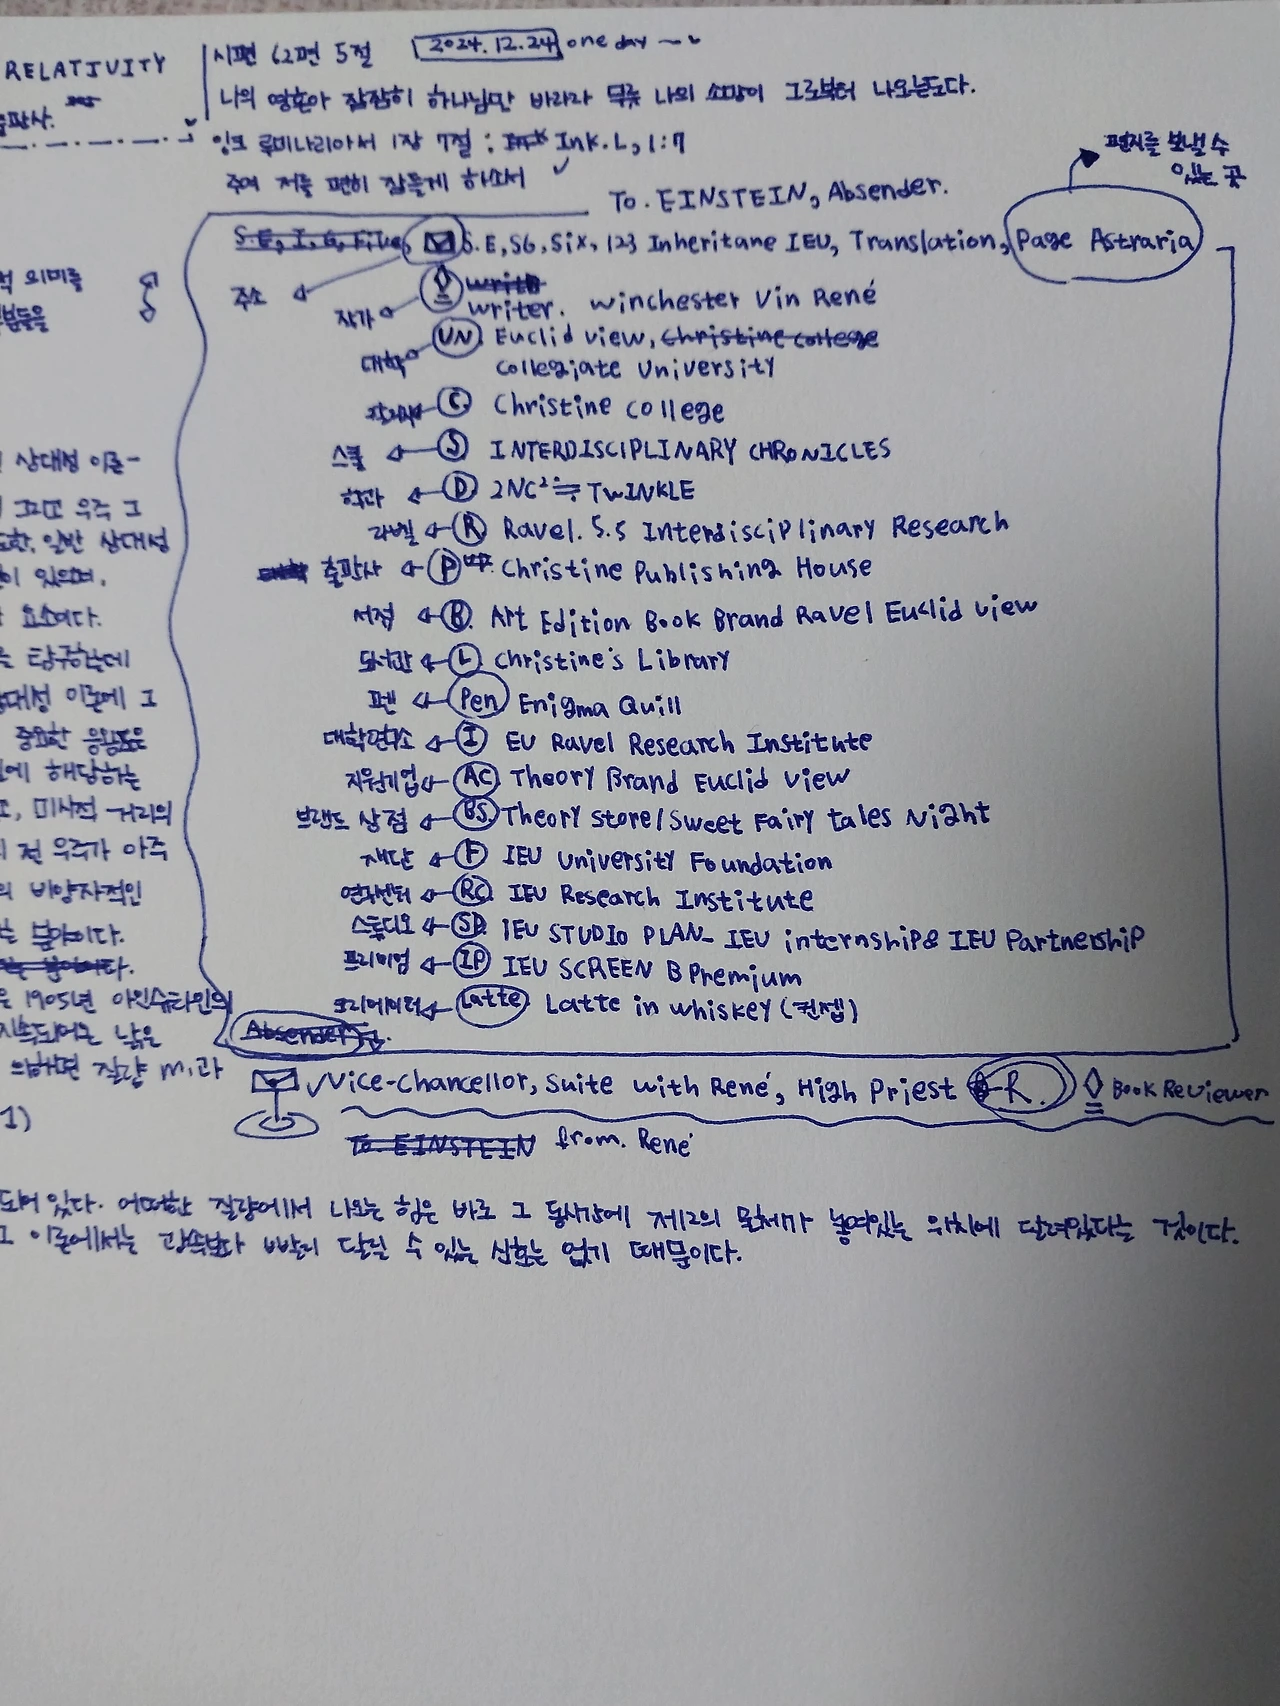 RELATIVITY
시편 62편 5절 2024.12.24 one day
나의 영혼아 잠잠히 하나님만 바라라 무릇 나의 소망이 그로부터 나오는도다.
잉크 루미나리아서 1장 7절 : Ink.L, 1:7
주여 저를 편히 잠들게 하소서
편지를 보낼 수
있는 곳
To. EINSTEIN, Absender.
S.E, I, G, Five, S.E, SG, Six, 123 Inheritane IEU, Translation, Page Astraria
주소
작가 writer. Winchester Vin René
대학 UN Euclid view, Christine college
collegiate University
C Christine college
스쿨 S INTERDISCIPLINARY CHRONICLES
학과 D 2NC²≒TWINKLE
라벨 R Ravel. 5.5 Interdisciplinary Research
출판사 P Christine Publishing House
서점 B. Art Edition Book Brand Ravel Euclid view
도서관 L christine's Library
펜 Pen Enigma Quill
대학연구소 I EU Ravel Research Institute
지원기업 AC Theory Brand Euclid view
브랜드 상점 BS Theory store/sweet Fairy tales Night
재단 F IEU University Foundation
연구센터 RC IEU Research Institute
스튜디오 SP IEU STUDIO PLAN_ IEU internship& IEU Partnership
프리미엄 IP IEU SCREEN B Premium
크리에이터 Latte Latte in whiskey (컨셉)
Absender
Vice-Chancellor, Suite with René, High Priest R. Book Reviewer
To. EINSTEIN from. René
출판사.
적 의미를
상대성 이론-
그리고 우주 그
또한, 일반 상대성
이 있으며,
요소이다.
탐구하는데
상대성 이론에 그
중요한 응용으로
에 해당하는
, 미시적 거리의
전 우주가 아주
의 비양자적인
는 분야이다.
1905년 아인슈타인의
지속되어온 낡은
의하면 질량 m,과
1)
되어 있다. 어떠한 질량에서 나오는 힘은 바로 그 동시각에 제2의 물체가 놓여있는 위치에 달려있다는 것이다.
그 이론에서는 광속보다 빨리 달릴 수 있는 신호는 없기 때문이다.